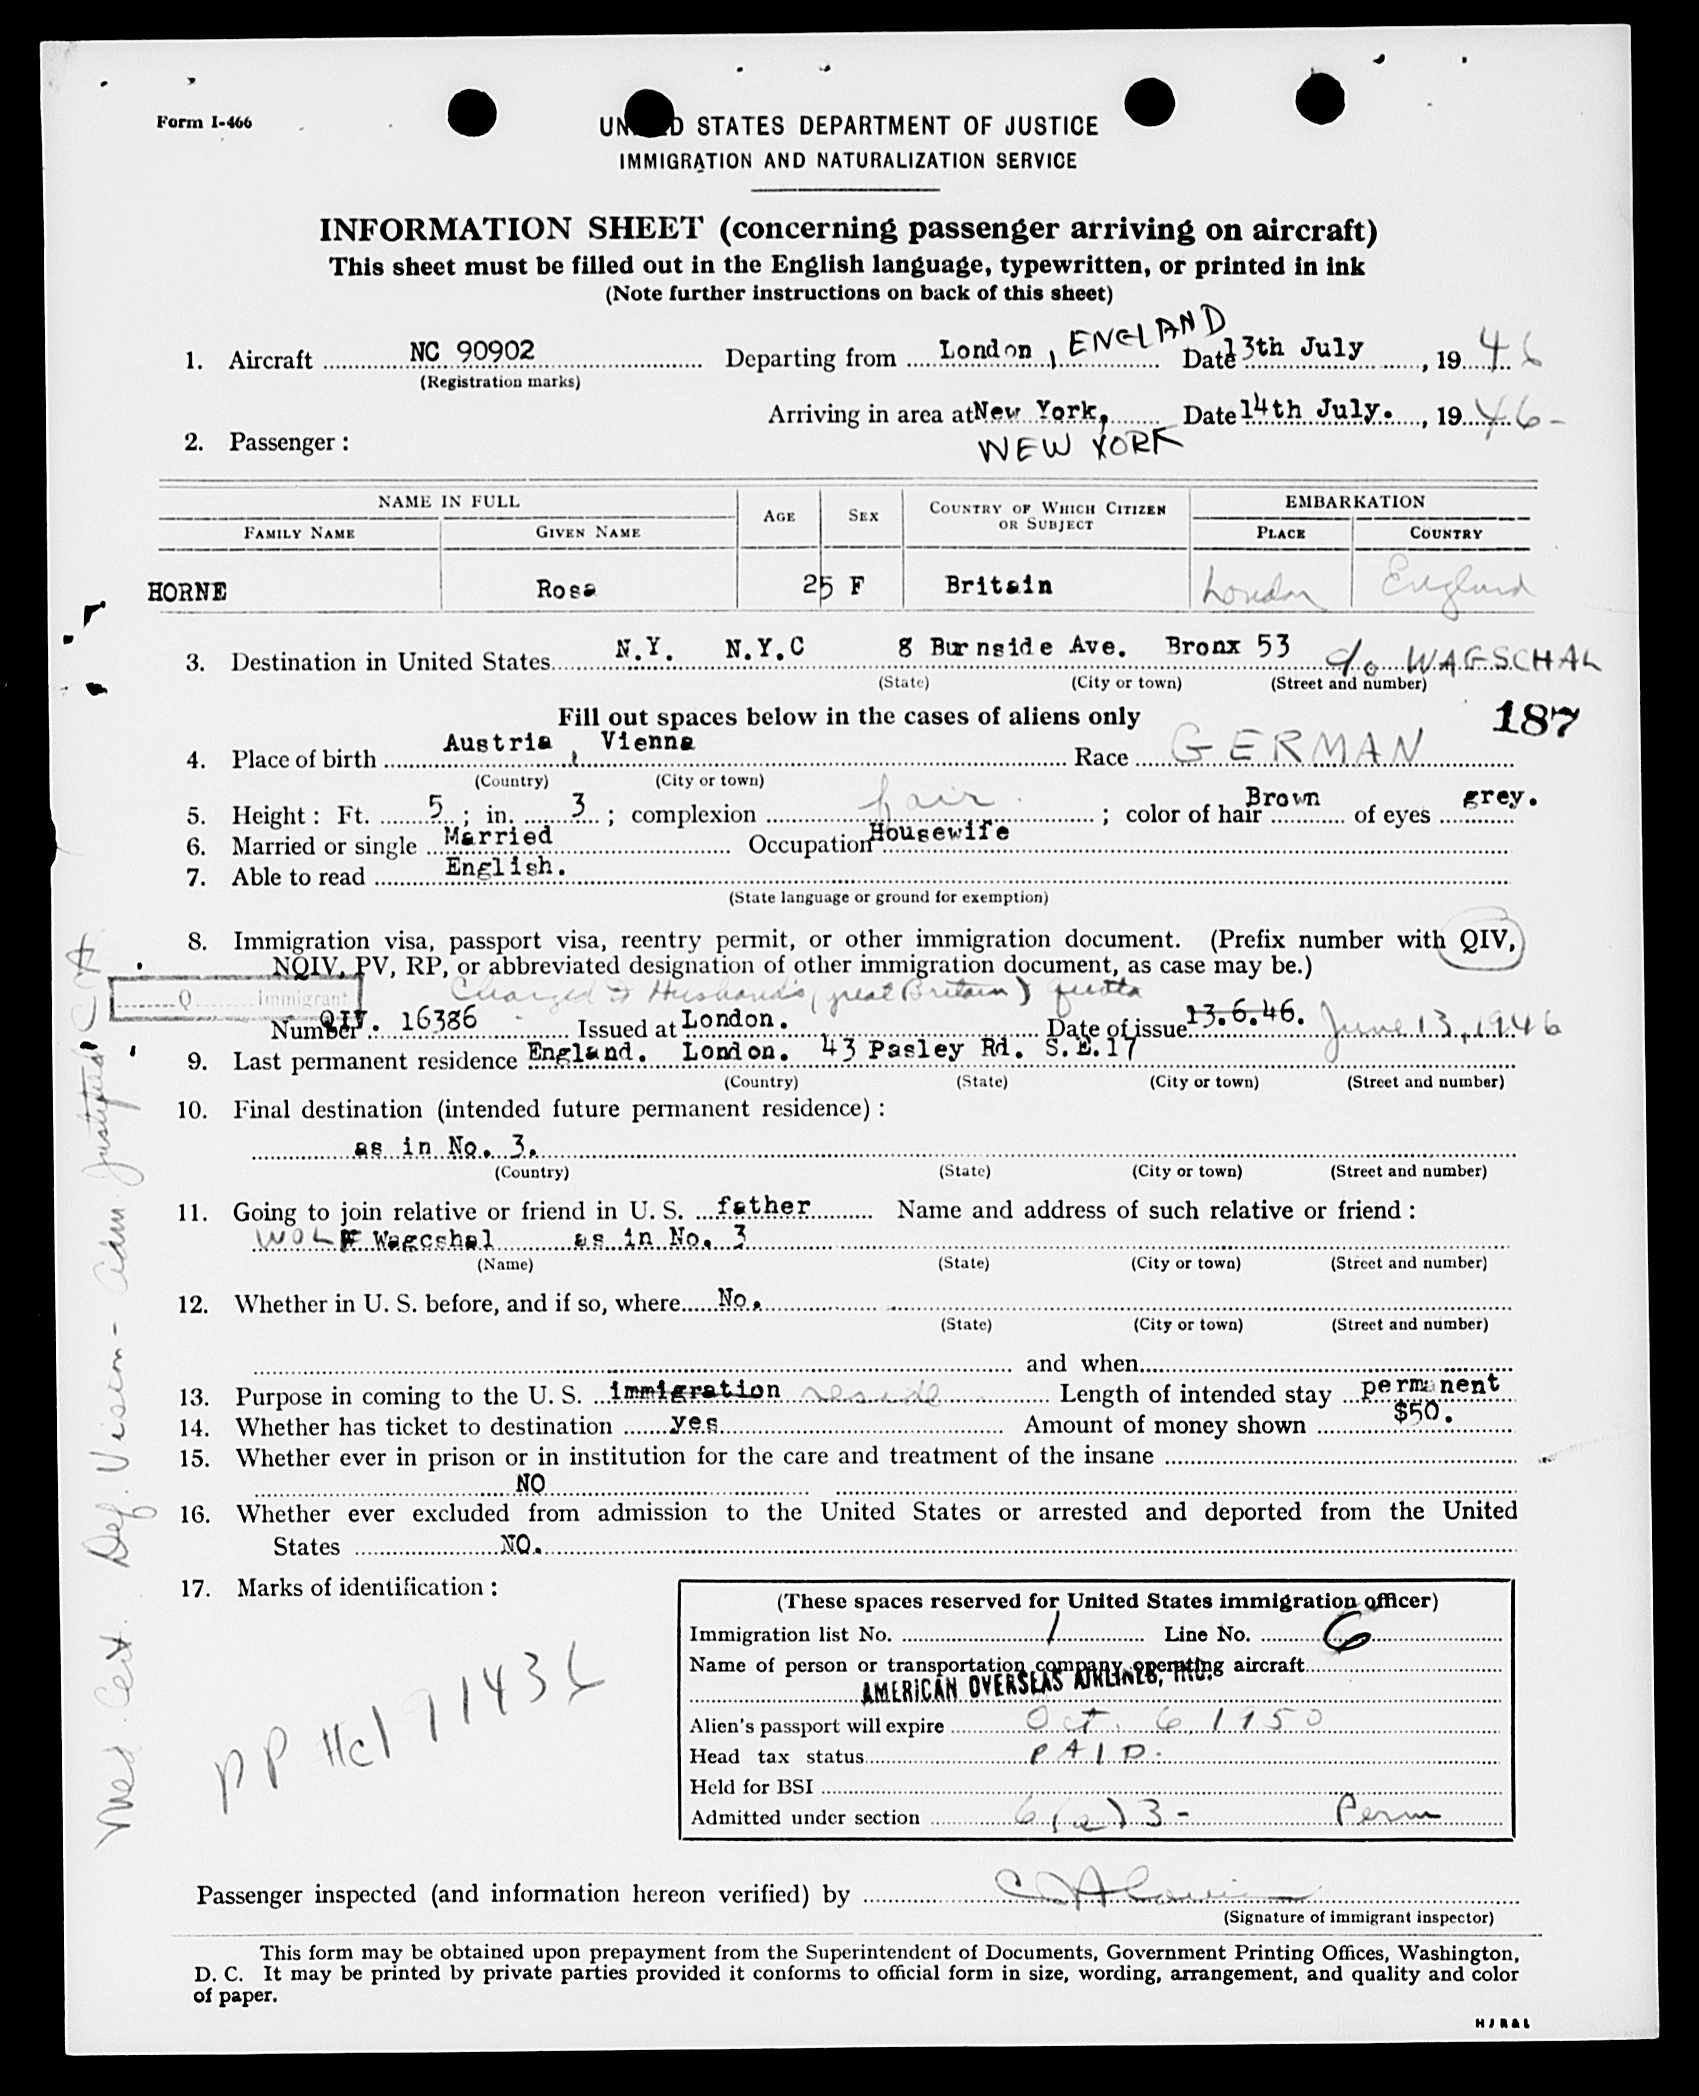 Form I-466
UNITED STATES DEPARTMENT OF JUSTICE
IMMIGRATION AND NATURALIZATION SERVICE
INFORMATION SHEET (concerning passenger arriving on aircraft)
This sheet must be filled out in the English language, typewritten, or printed in ink
(Note further instructions on back of this sheet)
1. Aircraft NC 90902 Departing from London, ENGLAND Date 13th July, 1946
(Registration marks)
Arriving in area at New York, Date 14th July., 1946-
NEW YORK
2. Passenger:
NAME IN FULL AGE SEX COUNTRY OF WHICH CITIZEN OR SUBJECT EMBARKATION
FAMILY NAME GIVEN NAME PLACE COUNTRY
HORNE Rosa 25 F Britain London England
3. Destination in United States N.Y. N.Y.C 8 Burnside Ave. Bronx 53 c/o WAGSCHAL
(State) (City or town) (Street and number)
187
Fill out spaces below in the cases of aliens only
4. Place of birth Austria, Vienna Race GERMAN
(Country) (City or town)
5. Height: Ft. 5; in. 3; complexion fair; color of hair Brown of eyes grey.
6. Married or single Married Occupation Housewife
7. Able to read English.
(State language or ground for exemption)
8. Immigration visa, passport visa, reentry permit, or other immigration document. (Prefix number with QIV,
NQIV, PV, RP, or abbreviated designation of other immigration document, as case may be.)
Q Immigrant
Charged to Husband's (great Britain) quota
Number QIV. 16386 Issued at London. Date of issue 13.6.46. June 13, 1946
9. Last permanent residence England. London. 43 Pasley Rd. S.E.17
(Country) (State) (City or town) (Street and number)
10. Final destination (intended future permanent residence):
as in No. 3.
(Country) (State) (City or town) (Street and number)
11. Going to join relative or friend in U. S. father Name and address of such relative or friend:
WOLF Wagcshal as in No. 3
(Name) (State) (City or town) (Street and number)
12. Whether in U. S. before, and if so, where No.
(State) (City or town) (Street and number)
and when
13. Purpose in coming to the U. S. immigration reside Length of intended stay permanent
14. Whether has ticket to destination yes Amount of money shown $50.
15. Whether ever in prison or in institution for the care and treatment of the insane
NO
16. Whether ever excluded from admission to the United States or arrested and deported from the United
States NO.
17. Marks of identification:
PP Hcl 71436
Med. Cert. Def. Vision - Adm. Justified
(These spaces reserved for United States immigration officer)
Immigration list No. 1 Line No. 6
Name of person or transportation company operating aircraft
AMERICAN OVERSEAS AIRLINES, INC.
Alien's passport will expire Oct. 6, 1950
Head tax status PAID.
Held for BSI
Admitted under section 6(a)3- Perm
Passenger inspected (and information hereon verified) by
(Signature of immigrant inspector)
This form may be obtained upon prepayment from the Superintendent of Documents, Government Printing Offices, Washington,
D. C. It may be printed by private parties provided it conforms to official form in size, wording, arrangement, and quality and color
of paper.